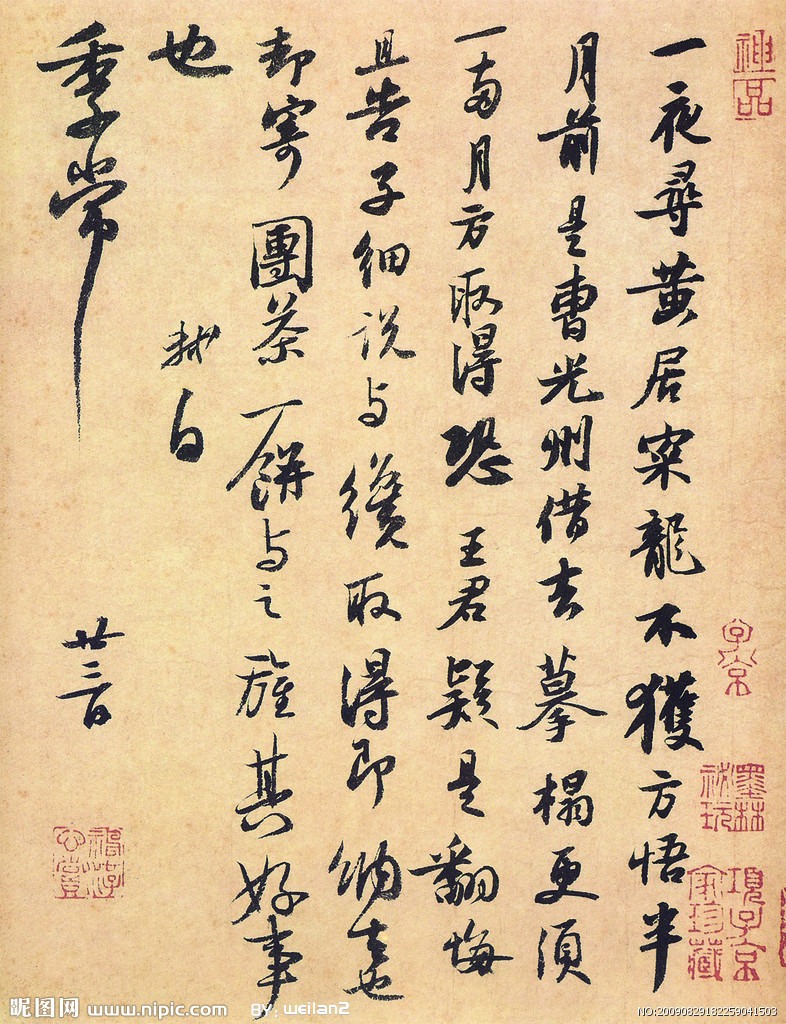 神品
一夜尋黃居寀龍不獲方悟半
月前是曹光州借去摹榻更須
一兩月方取得恐王君疑是翻悔
且告子細說與纔取得即納去也
却寄團茶一餅與之旌其好事
也
軾白
季常
廿三日
子京
墨林祕玩
項子京家珍藏
昵图网 www.nipic.com BY: weilan2
NO:20090829182259041503